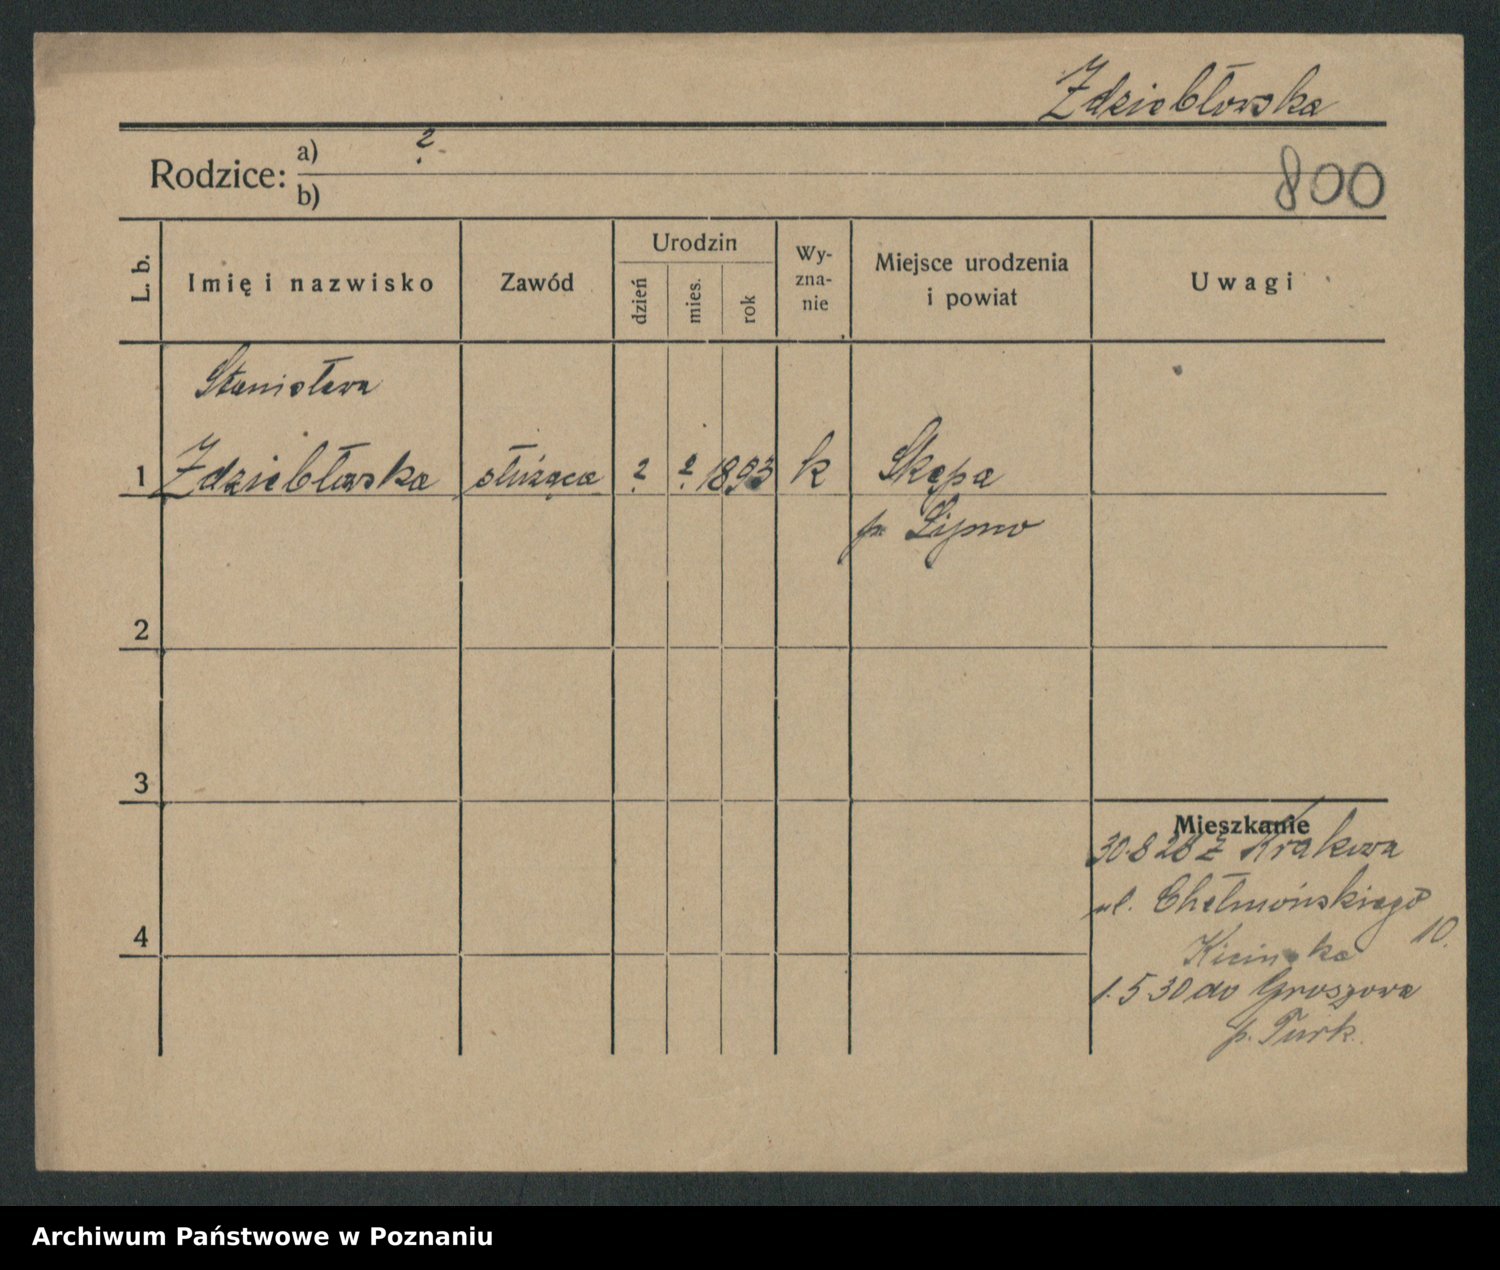 Zdziebłowska
Rodzice: a) ?
b)
800
L. b.
Imię i nazwisko
Zawód
Urodzin
dzień
mies.
rok
Wy-
zna-
nie
Miejsce urodzenia
i powiat
Uwagi
Stanisława
1 Zdziebłowska służąca ? ? 1893 k Skępa
p. Lipno
2
3
Mieszkanie
30.8 28 z Krakowa
ul. Chełmońskiego
10.
4
Kicińska
1.5 30 do Groszowa
p. Turk.
Archiwum Państwowe w Poznaniu